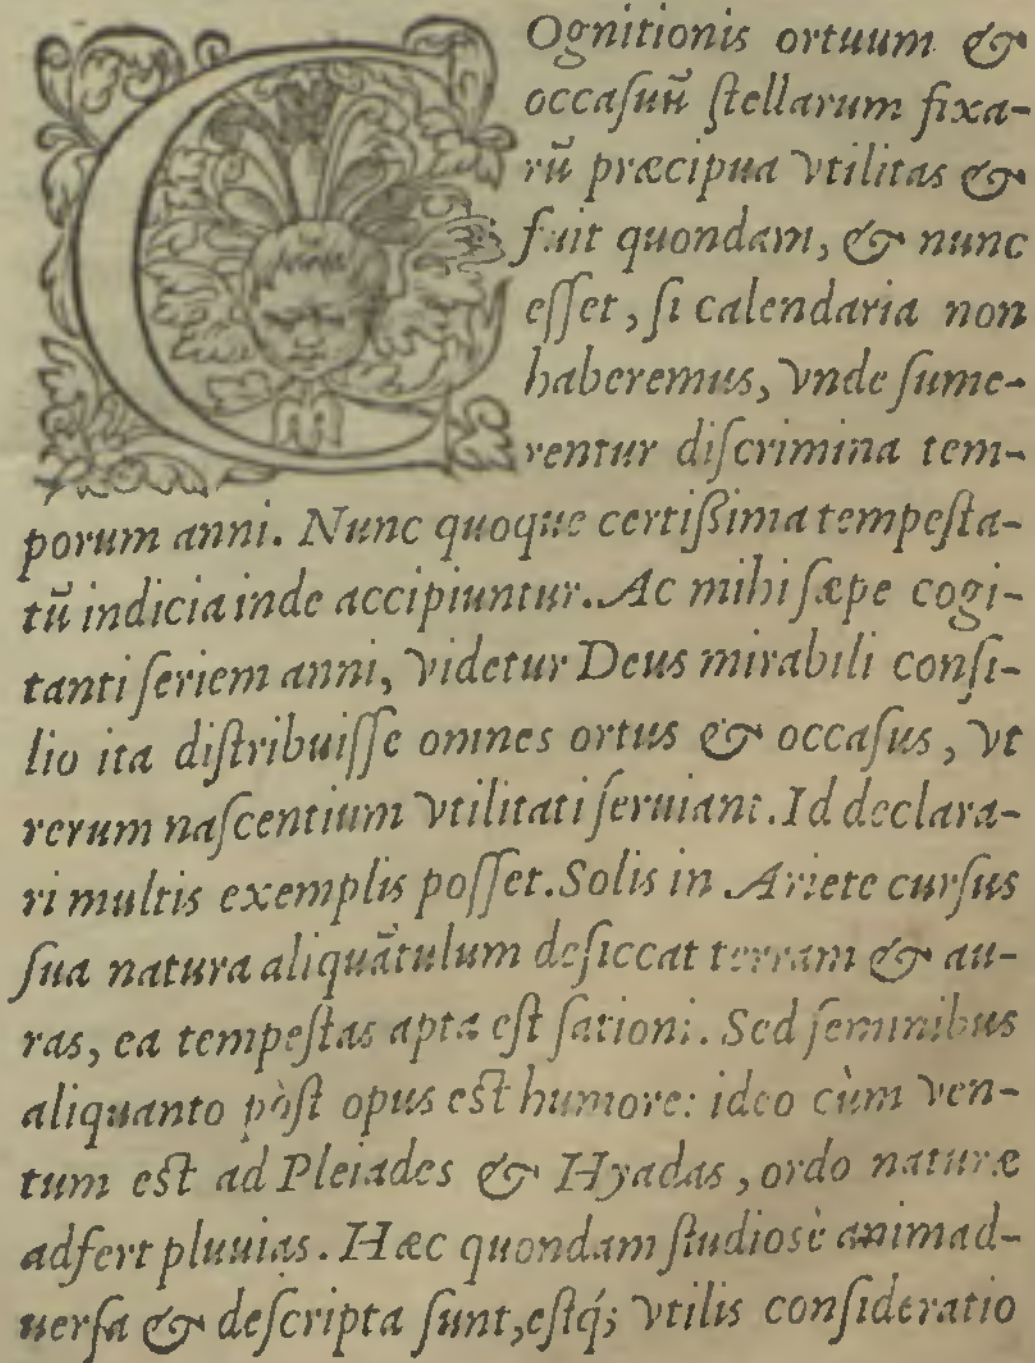 COgnitionis ortuum &
occaſuũ ſtellarum fixa-
rũ præcipua vtilitas &
fuit quondam, & nunc
eſſet, ſi calendaria non
haberemus, vnde ſume-
rentur diſcrimina tem-
porum anni. Nunc quoque certißima tempeſta-
tũ indicia inde accipiuntur. Ac mihi ſæpe cogi-
tanti ſeriem anni, videtur Deus mirabili conſi-
lio ita diſtribuiſſe omnes ortus & occaſus, vt
rerum naſcentium vtilitati ſeruiant. Id declara-
ri multis exemplis poſſet. Solis in Ariete curſus
ſua natura aliquãtulum deſiccat terram & au-
ras, ea tempeſtas apta eſt ſationi. Sed ſeminibus
aliquanto pòſt opus eſt humore: ideo cùm ven-
tum eſt ad Pleiades & Hyadas, ordo naturæ
adfert pluuias. Hæc quondam ſtudiosè animad-
uerſa & deſcripta ſunt, eſtq́; vtilis conſideratio